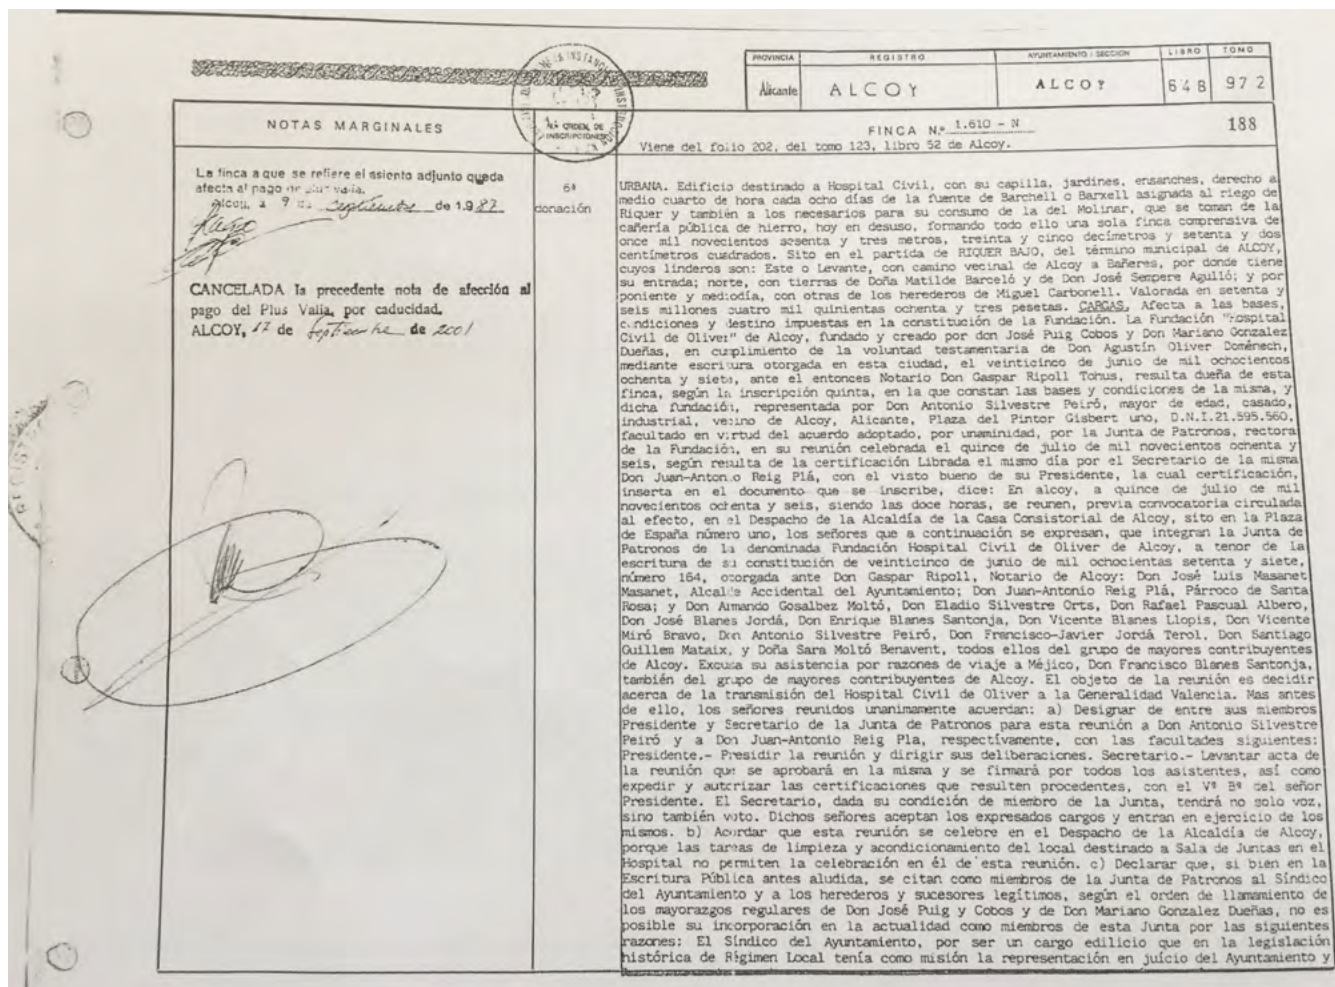 PROVINCIA
REGISTRO
AYUNTAMIENTO / SECCION
LIBRO
TOMO
Alicante
ALCOY
ALCOY
648
972
NOTAS MARGINALES
Nª ORDEN DE
INSCRIPCIONES
FINCA N.º 1.610 - N
188
Viene del folio 202, del tomo 123, libro 52 de Alcoy.
La finca a que se refiere el asiento adjunto queda
afecta al pago de plus valia.
Alcoy, a 9 de septiembre de 1.987
CANCELADA la precedente nota de afección al
pago del Plus Valía, por caducidad.
ALCOY, 17 de septiembre de 2001
6ª
donación
URBANA. Edificio destinado a Hospital Civil, con su capilla, jardines, ensanches, derecho a
medio cuarto de hora cada ocho días de la fuente de Barchell o Barxell asignada al riego de
Riquer y también a los necesarios para su consumo de la del Molinar, que se toman de la
cañería pública de hierro, hoy en desuso, formando todo ello una sola finca comprensiva de
once mil novecientos sesenta y tres metros, treinta y cinco decímetros y setenta y dos
centímetros cuadrados. Sito en el partida de RIQUER BAJO, del término municipal de ALCOY,
cuyos linderos son: Este o Levante, con camino vecinal de Alcoy a Bañeres, por donde tiene
su entrada; norte, con tierras de Doña Matilde Barceló y de Don José Sempere Agulló; y por
poniente y mediodía, con otras de los herederos de Miguel Carbonell. Valorada en setenta y
seis millones cuatro mil quinientas ochenta y tres pesetas. CARGAS. Afecta a las bases,
condiciones y destino impuestas en la constitución de la Fundación. La Fundación "Hospital
Civil de Oliver" de Alcoy, fundado y creado por don José Puig Cobos y Don Mariano Gonzalez
Dueñas, en cumplimiento de la voluntad testamentaria de Don Agustín Oliver Doménech,
mediante escritura otorgada en esta ciudad, el veinticinco de junio de mil ochocientos
ochenta y siete, ante el entonces Notario Don Gaspar Ripoll Tohus, resulta dueña de esta
finca, según la inscripción quinta, en la que constan las bases y condiciones de la misma, y
dicha fundación, representada por Don Antonio Silvestre Peiró, mayor de edad, casado,
industrial, vecino de Alcoy, Alicante, Plaza del Pintor Gisbert uno, D.N.I.21.595.560,
facultado en virtud del acuerdo adoptado, por unaminidad, por la Junta de Patronos, rectora
de la Fundación, en su reunión celebrada el quince de julio de mil novecientos ochenta y
seis, según resulta de la certificación Librada el mismo día por el Secretario de la misma
Don Juan-Antonio Reig Plá, con el visto bueno de su Presidente, la cual certificación,
inserta en el documento que se inscribe, dice: En alcoy, a quince de julio de mil
novecientos ochenta y seis, siendo las doce horas, se reunen, previa convocatoria circulada
al efecto, en el Despacho de la Alcaldía de la Casa Consistorial de Alcoy, sito en la Plaza
de España número uno, los señores que a continuación se expresan, que integran la Junta de
Patronos de la denominada Fundación Hospital Civil de Oliver de Alcoy, a tenor de la
escritura de su constitución de veinticinco de junio de mil ochocientas setenta y siete,
número 164, otorgada ante Don Gaspar Ripoll, Notario de Alcoy: Don José Luis Masanet
Masanet, Alcalde Accidental del Ayuntamiento; Don Juan-Antonio Reig Plá, Párroco de Santa
Rosa; y Don Armando Gosalbez Moltó, Don Eladio Silvestre Orts, Don Rafael Pascual Albero,
Don José Blanes Jordá, Don Enrique Blanes Santonja, Don Vicente Blanes Llopis, Don Vicente
Miró Bravo, Don Antonio Silvestre Peiró, Don Francisco-Javier Jordá Terol, Don Santiago
Guillem Mataix, y Doña Sara Moltó Benavent, todos ellos del grupo de mayores contribuyentes
de Alcoy. Excusa su asistencia por razones de viaje a Méjico, Don Francisco Blanes Santonja,
también del grupo de mayores contribuyentes de Alcoy. El objeto de la reunión es decidir
acerca de la transmisión del Hospital Civil de Oliver a la Generalidad Valencia. Mas antes
de ello, los señores reunidos unanimamente acuerdan: a) Designar de entre sus miembros
Presidente y Secretario de la Junta de Patronos para esta reunión a Don Antonio Silvestre
Peiró y a Don Juan-Antonio Reig Pla, respectívamente, con las facultades siguientes:
Presidente.- Presidir la reunión y dirigir sus deliberaciones. Secretario.- Levantar acta de
la reunión que se aprobará en la misma y se firmará por todos los asistentes, así como
expedir y autorizar las certificaciones que resulten procedentes, con el Vº Bº del señor
Presidente. El Secretario, dada su condición de miembro de la Junta, tendrá no solo voz,
sino también voto. Dichos señores aceptan los expresados cargos y entran en ejercicio de los
mismos. b) Acordar que esta reunión se celebre en el Despacho de la Alcaldía de Alcoy,
porque las tareas de limpieza y acondicionamiento del local destinado a Sala de Juntas en el
Hospital no permiten la celebración en él de esta reunión. c) Declarar que, si bien en la
Escritura Pública antes aludida, se citan como miembros de la Junta de Patronos al Síndico
del Ayuntamiento y a los herederos y sucesores legítimos, según el orden de llamamiento de
los mayorazgos regulares de Don José Puig y Cobos y de Don Mariano Gonzalez Dueñas, no es
posible su incorporación en la actualidad como miembros de esta Junta por las siguientes
razones: El Síndico del Ayuntamiento, por ser un cargo edilicio que en la legislación
histórica de Régimen Local tenía como misión la representación en juício del Ayuntamiento y